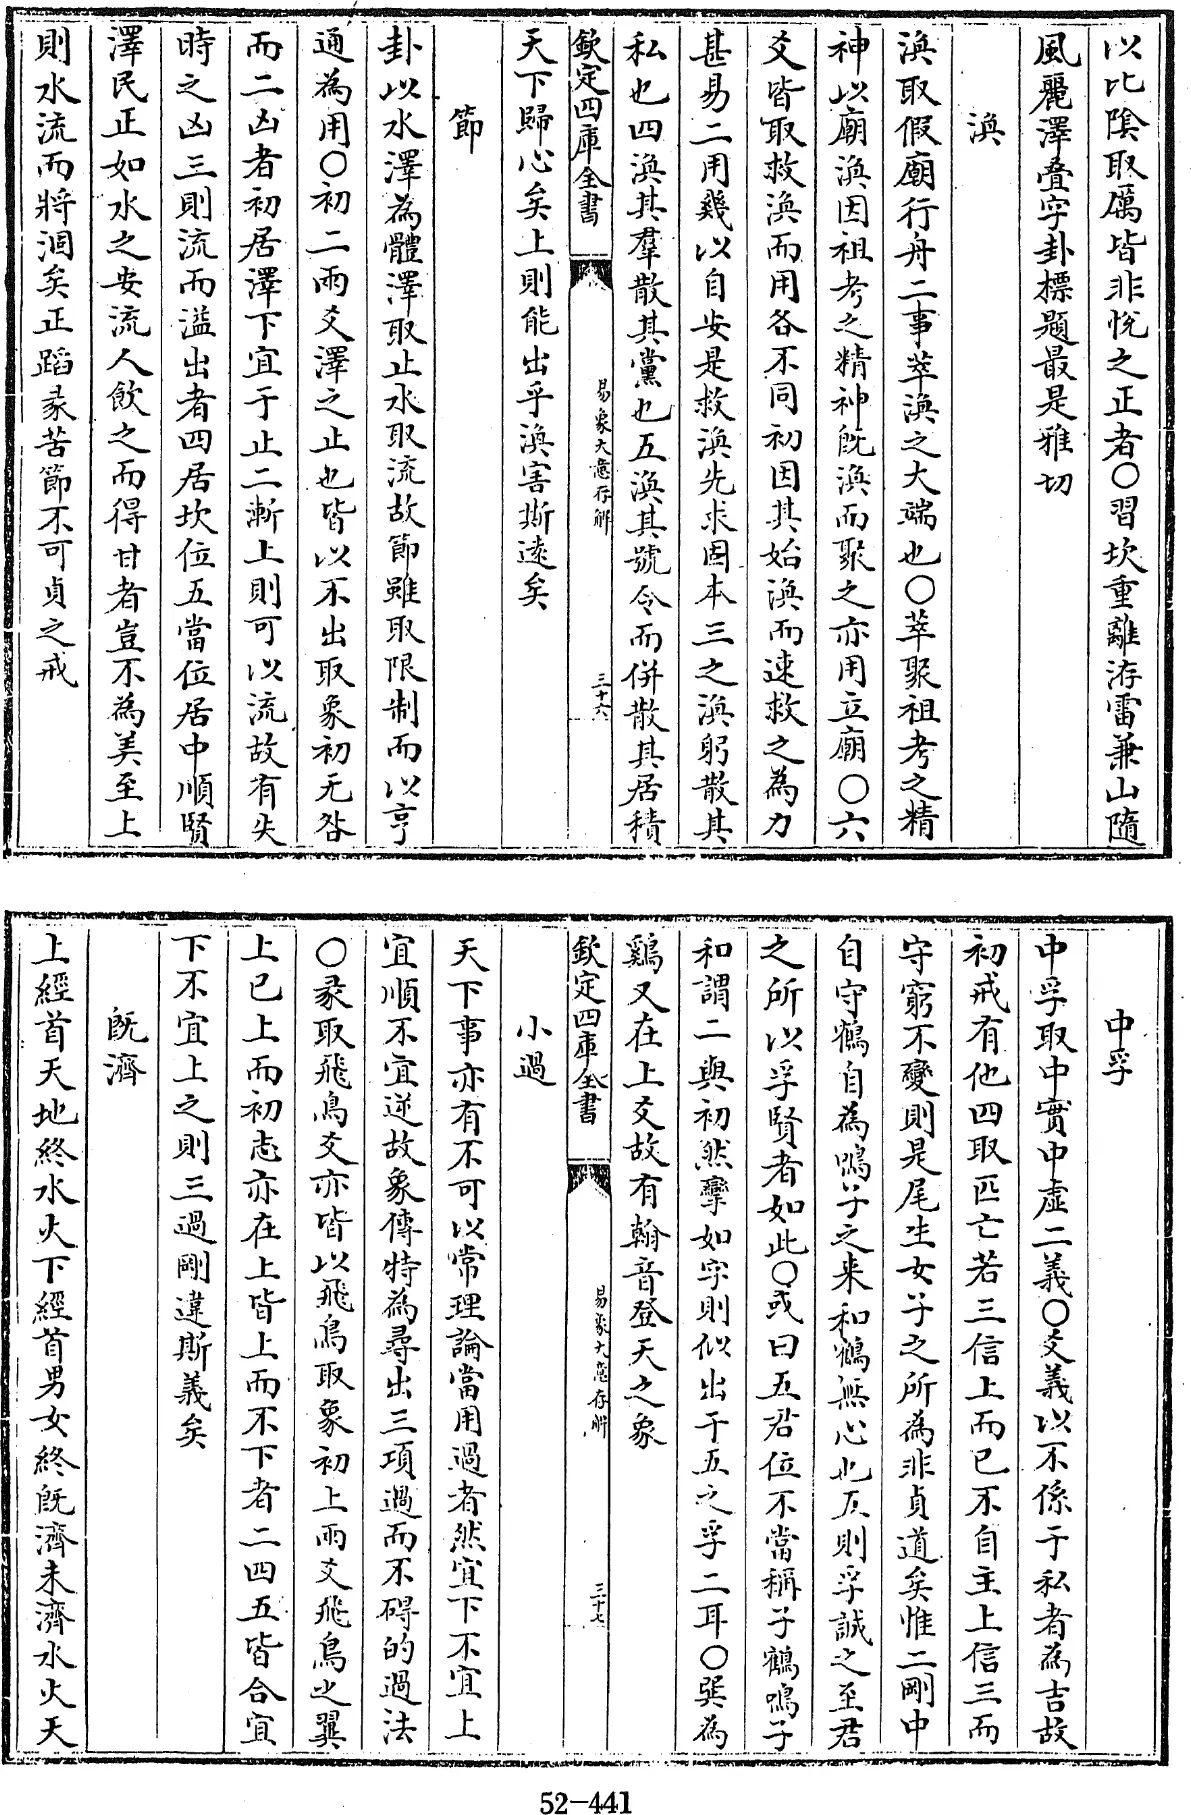 以比陰取厲皆非悅之正者○習坎重離洊雷兼山隨
風麗澤疊字卦標題最是雅切
渙
渙取假廟行舟二事萃渙之大端也○萃聚祖考之精
神以廟渙因祖考之精神既渙而聚之亦用立廟○六
爻皆取救渙而用各不同初因其始渙而速救之為力
甚易二用幾以自安是救渙先求固本三之渙躬散其
私也四渙其羣散其黨也五渙其號令而併散其居積
欽定四庫全書
易象大意存解
三十六
天下歸心矣上則能出乎渙害斯遠矣
節
卦以水澤為體澤取止水取流故節雖取限制而以亨
通為用○初二兩爻澤之止也皆以不出取象初无咎
而二凶者初居澤下宜于止二漸上則可以流故有失
時之凶三則流而溢出者四居坎位五當位居中順賢
澤民正如水之安流人飲之而得甘者豈不為美至上
則水流而將涸矣正蹈彖苦節不可貞之戒
中孚
中孚取中實中虛二義○爻義以不係于私者為吉故
初戒有他四取匹亡若三信上而已不自主上信三而
守窮不變則是尾生女子之所為非貞道矣惟二剛中
自守鶴自為鳴子之来和鶴無心也五則孚誠之至君
之所以孚賢者如此○或曰五君位不當稱子鶴鳴子
和謂二與初然攣如字則似出于五之孚二耳○巽為
鷄又在上爻故有翰音登天之象
欽定四庫全書
易象大意存解
三十七
小過
天下事亦有不可以常理論當用過者然宜下不宜上
宜順不宜逆故象傳特為尋出三項過而不碍的過法
○彖取飛鳥爻亦皆以飛鳥取象初上兩爻飛鳥之翼
上已上而初志亦在上皆上而不下者二四五皆合宜
下不宜上之則三過剛違斯義矣
既濟
上經首天地終水火下經首男女終既濟未濟水火天
52-441